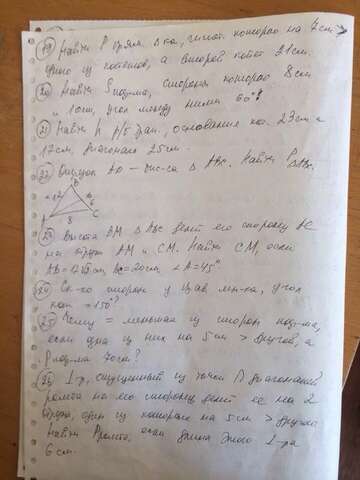 19 Найти P прям. Δ-ка, гипот. которого на 7 см >
одного из катетов, а второй катет 21 см.
20 Найти S пар-ма, стороны которого 8 см
и 10 см, угол между ними 60°?
21 Найти h р/б трап., основания кот. 23 см и
17 см, диагональ 25 см.
22 AD – бис-са Δ ABC. Найти P
ΔABC.
B
12
6
A 8 C
23 Высота BM Δ ABC делит его сторону AC
на отрезки AM и CM. Найти CM, если
AB = см, AC = 20 см, ∠A = 45°
24 Ск-ко сторон у мн-ка, угол
= 150°?
25 Чему = меньшая из сторон пар-ма,
если одна из них на 5 см > другой, а
P пар-ма 70 см?
26 ⊥-р, опущенный из точки диагоналей
ромба на его сторону делит ее на 2
отрезка, один из которых на 5 см > другого
Найти Pромба, если длина этого ⊥-ра
6 см.